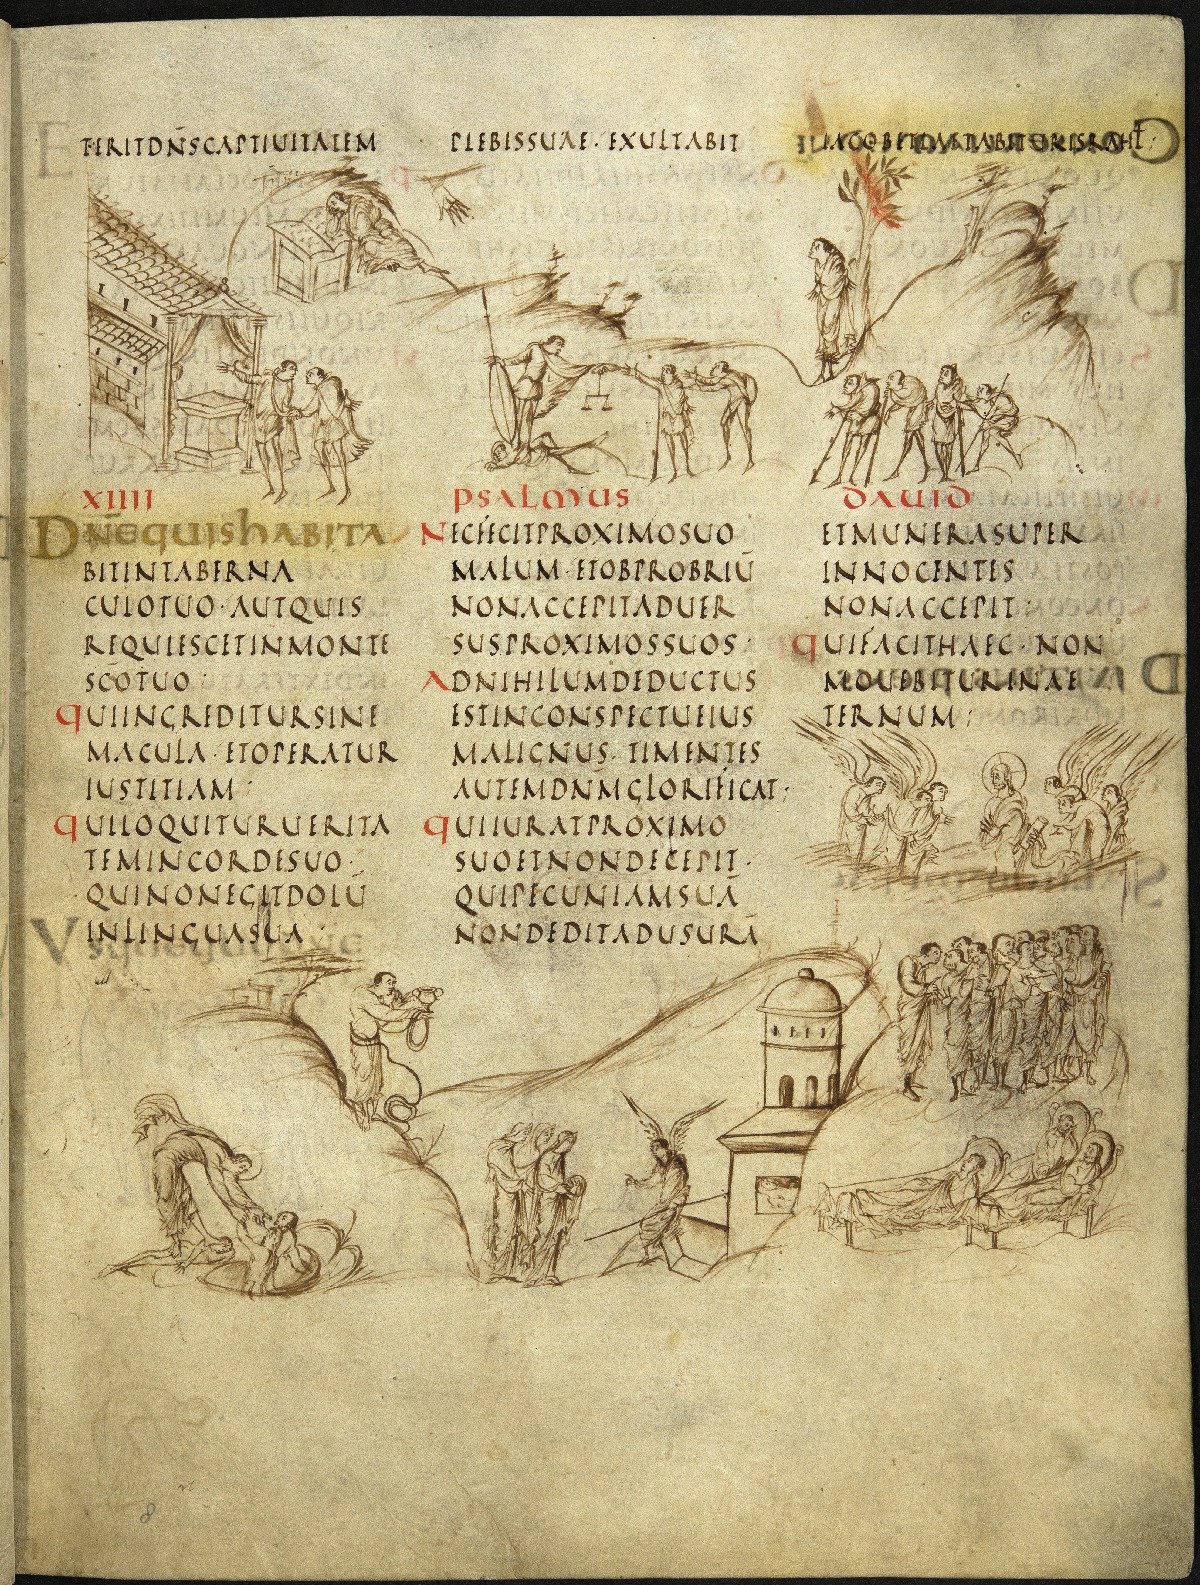 TERITDN̄SCAPTIUITATEM PLEBISSUAE · EXULTABIT IACOBETLAETABITURISRAHL ·
XIIII
DN̄EQUISHABITA
BITINTABERNA
CULOTUO · AUTQUIS
REQUIESCETINMONTE
SC̄OTUO ·
QUIINGREDITURSINE
MACULA · ETOPERATUR
IUSTITIAM ·
QUILOQUITURUERITA
TEMINCORDESUO ·
QUINONEGITDOLŪ
INLINGUASUA ·
PSALMUS
NECFECITPROXIMOSUO
MALUM · ETOBPROBRIŪ
NONACCEPITADUER
SUSPROXIMOSSUOS ·
ADNIHILUMDEDUCTUS
ESTINCONSPECTUEIUS
MALIGNUS · TIMENTES
AUTEMDN̄MGLORIFICAT ·
QUIIURATPROXIMO
SUOETNONDECEPIT ·
QUIPECUNIAMSUĀ
NONDEDITADUSURĀ
DAUID
ETMUNERASUPER
INNOCENTES
NONACCEPIT ·
QUIFACITHAEC · NON
MOUEBITURINAE
TERNUM ·
8